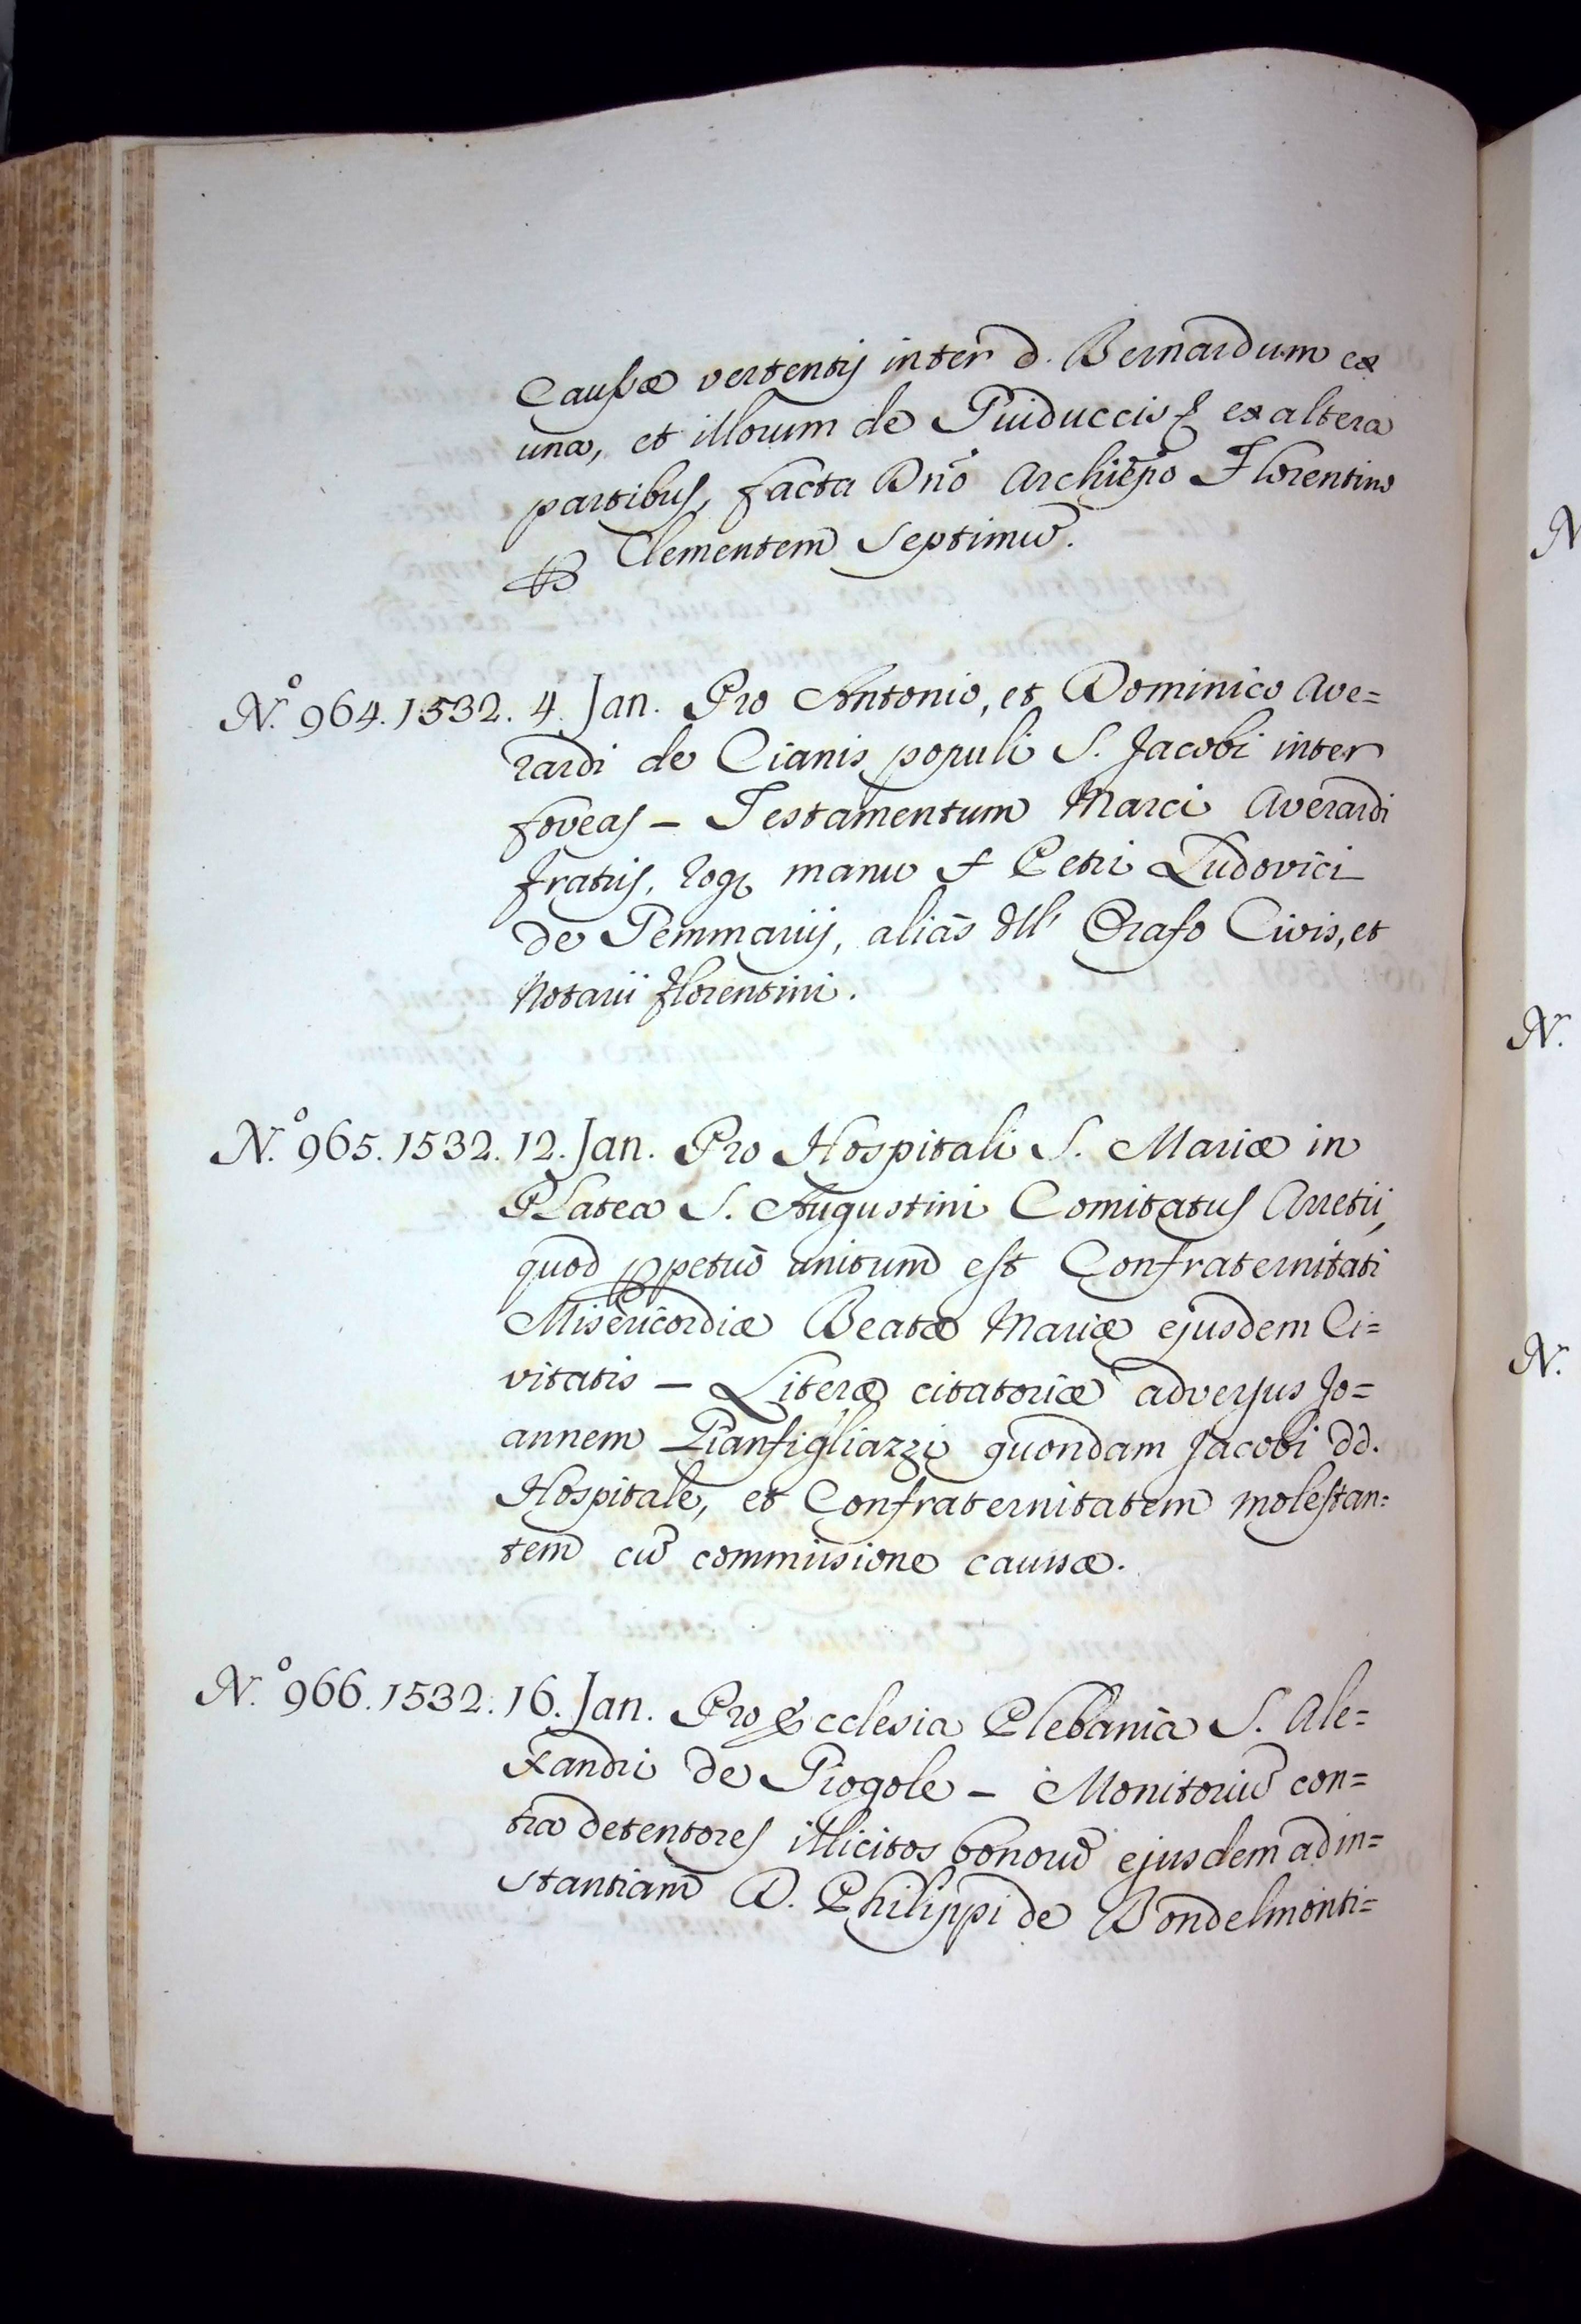 Caussæ vertentis inter d. Bernardum ex
una, et illorum de Guiduccis ex altera
partibus, facta Dno Archiepo Florentino
Clementem Septimū.
N.º 964. 1532. 4. Jan. Pro Antonio, et Dominico Ave=
rardi de Cianis populi S. Jacobi inter
foveas – Testamentum Marci Averardi
fratris, rog. manu f Petri Ludovici
de Gemmariis, alias dll' Orafo Civis, et
Notarii Florentini.
N.º 965. 1532. 12. Jan. Pro Hospitali S. Mariæ in
Platea S. Augustini Comitatus Arretii,
quod ppetuō unitum est Confraternitati
Misericordiæ Beatæ Mariæ ejusdem Ci=
vitatis – Literæ citatoriæ adversus Jo=
annem Gianfigliazzi quondam Jacobi dd.
Hospitale, et Confraternitatem molestan=
tem cū commissione caussæ.
N.º 966. 1532. 16. Jan. Pro Ecclesia Plebania S. Ale=
xandri de Giogole – Monitoriū con=
tra detentores illicitos bonorū ejusdem ad in=
stantiam D. Philippi de Bondelmonti=
N
N.
N.